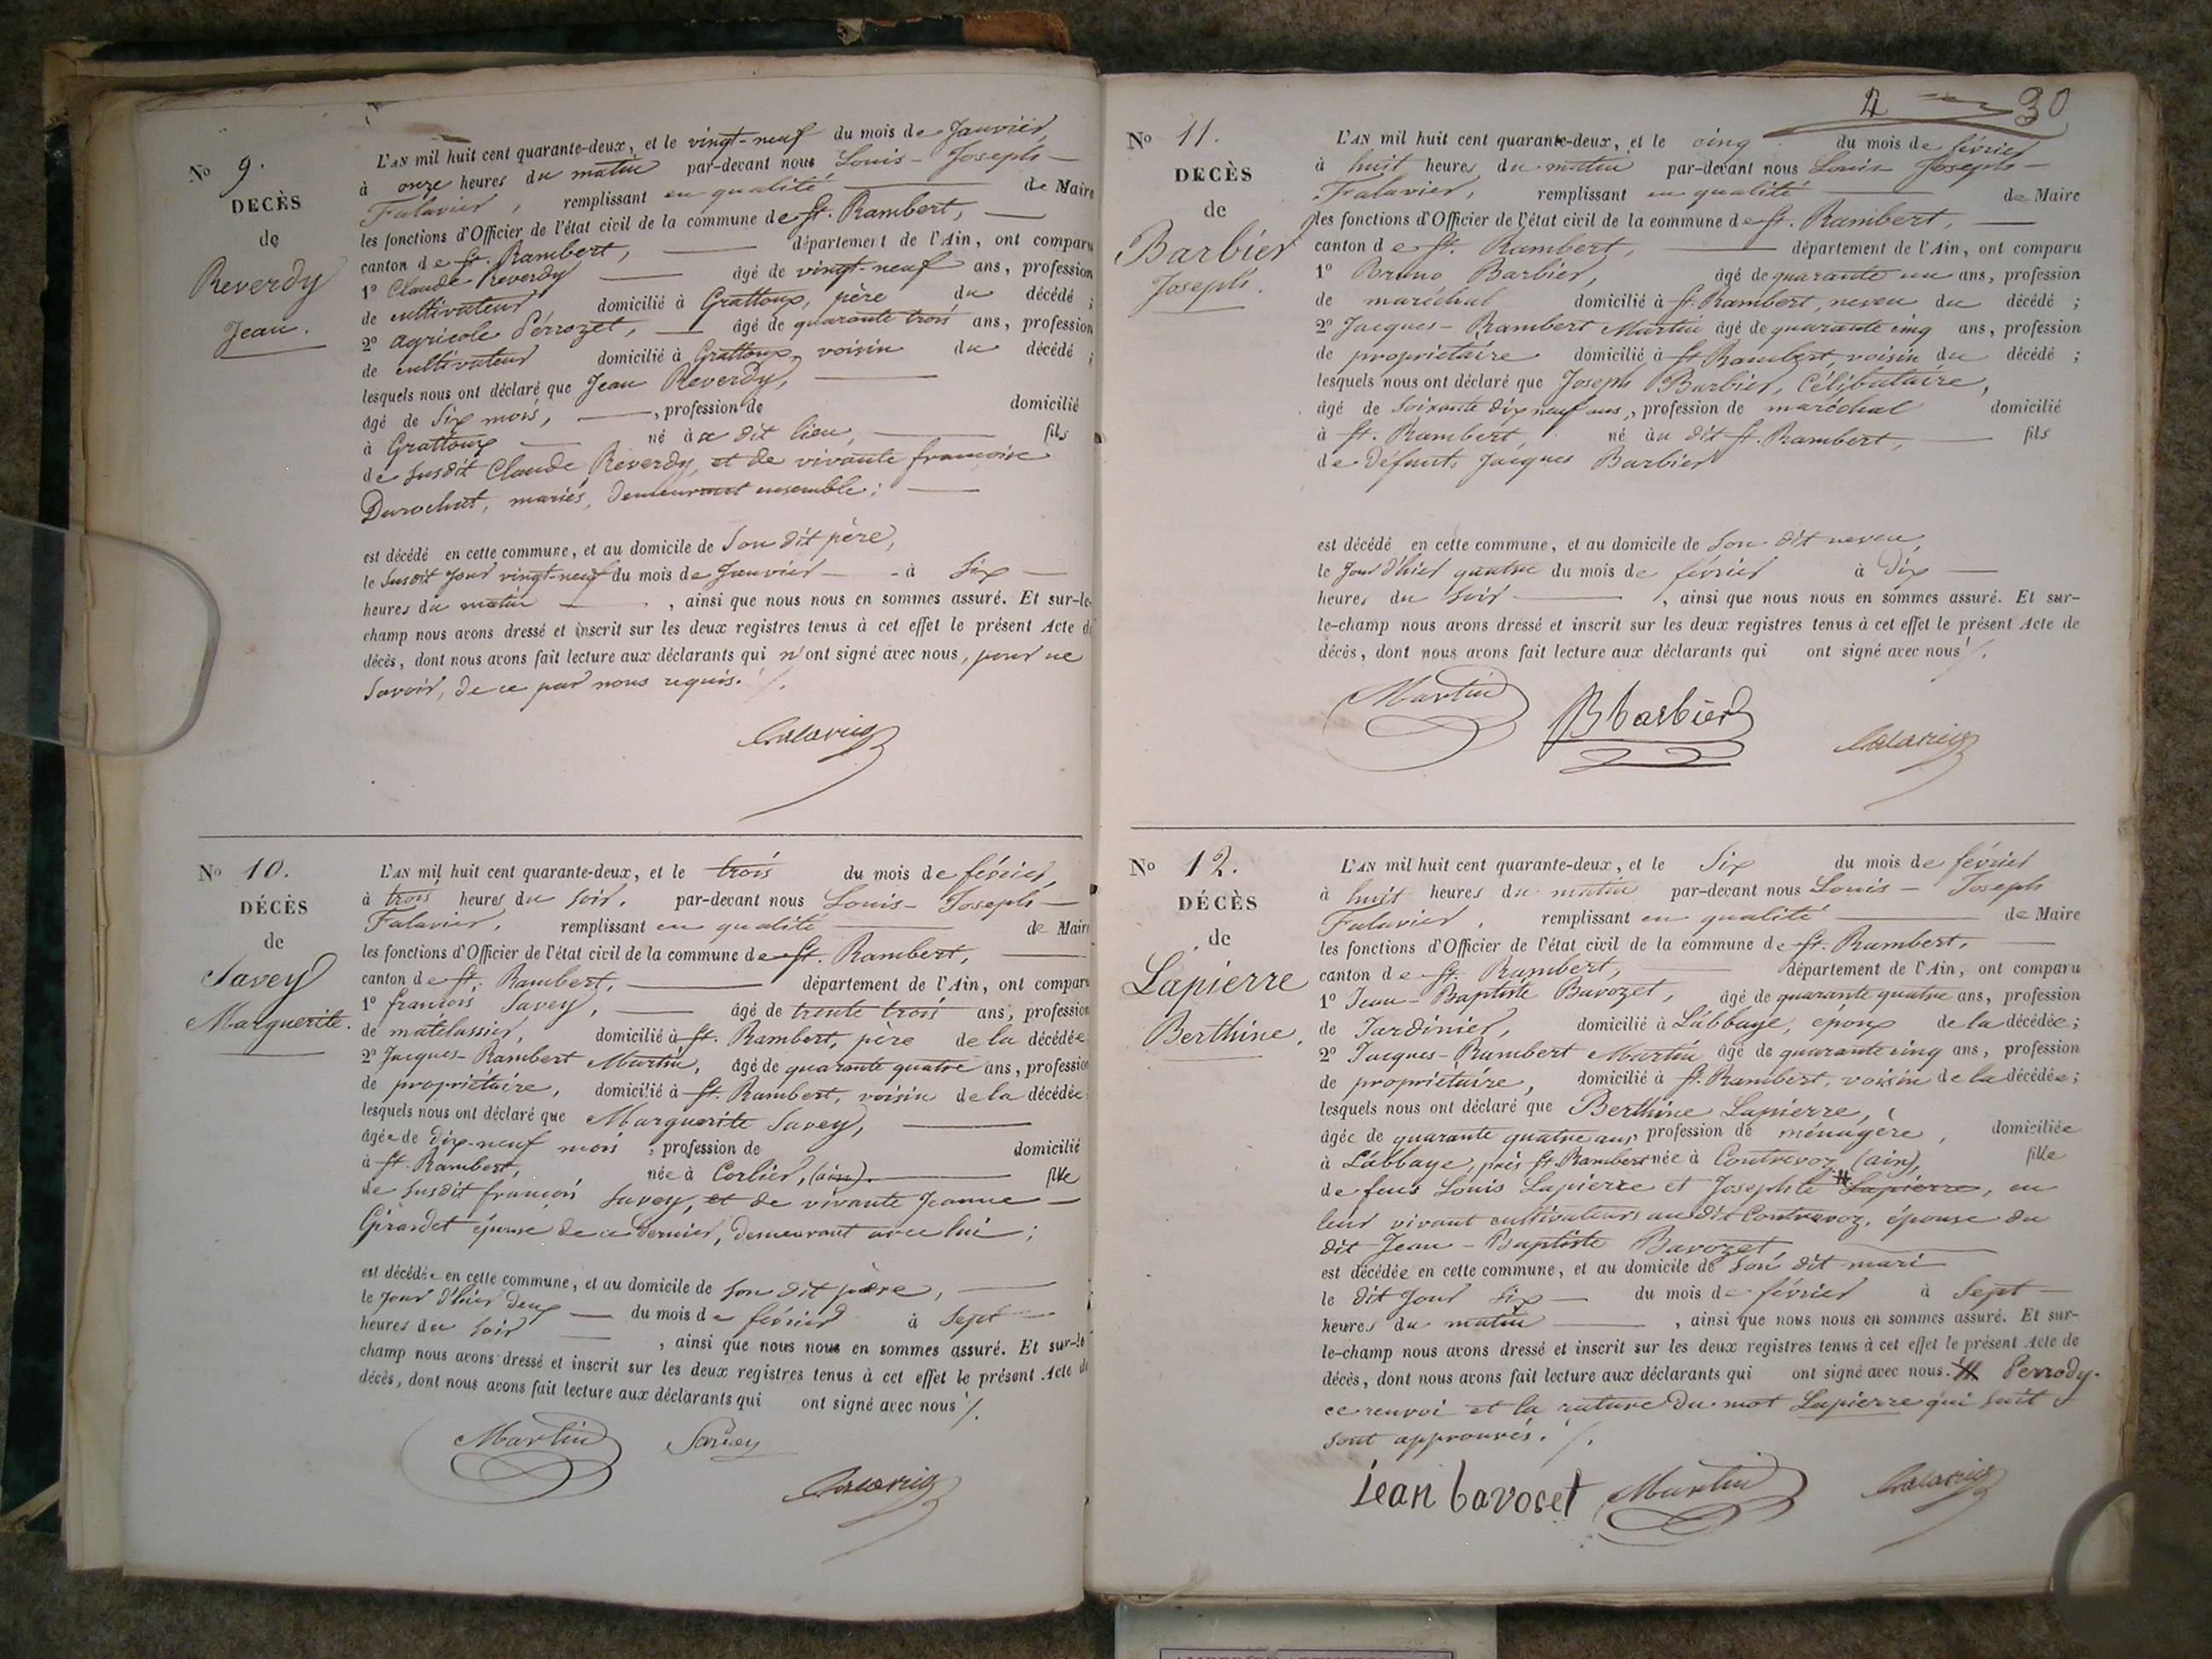 No 9.
DECÈS
de
Reverdy
Jean.
L'AN mil huit cent quarante-deux, et le vingt-neuf du mois de Janvier,
à onze heures du matin par-devant nous Louis-Joseph
Falavier, remplissant en qualité de Maire
les fonctions d'Officier de l'état civil de la commune de St. Rambert,
canton de St. Rambert, département de l'Ain, ont comparu
1o Claude Reverdy âgé de vingt-neuf ans, profession
de cultivateur domicilié à Grattoux, père du décédé ;
2o agricole Pérrozet, âgé de quarante trois ans, profession
de cultivateur domicilié à Grattoux, voisin du décédé ;
lesquels nous ont déclaré que Jean Reverdy,
âgé de Six mois, , profession de domicilié
à Grattoux né à ce dit lieu, fils
de Susdit Claude Reverdy, et de vivante françoise
Durochat, mariés, demeurant ensemble ;
est décédé en cette commune, et au domicile de Son dit père,
le Susdit jour vingt-neuf du mois de Janvier à Six
heures du matin , ainsi que nous nous en sommes assuré. Et sur-le-
champ nous avons dressé et inscrit sur les deux registres tenus à cet effet le présent Acte de
décès, dont nous avons fait lecture aux déclarants qui n'ont signé avec nous, pour ne
Savoir, de ce par nous requis.
Falavier
No 10.
DÉCÈS
de
Savey
Marguerite.
L'AN mil huit cent quarante-deux, et le trois du mois de février,
à trois heures du soir. par-devant nous Louis-Joseph
Falavier, remplissant en qualité de Maire
les fonctions d'Officier de l'état civil de la commune de St. Rambert,
canton de St. Rambert, département de l'Ain, ont comparu
1o françois Savey, âgé de trente trois ans, profession
de matelassier, domicilié à St. Rambert, père de la décédée
2o Jacques-Rambert Martin, âgé de quarante quatre ans, profession
de propriétaire, domicilié à St. Rambert, voisin de la décédée
lesquels nous ont déclaré que Marguerite Savey,
âgée de dix-neuf mois , profession de domicilié
à St. Rambert, née à Corlier, (ain). fille
de Susdit françois Savey, et de vivante Jeanne
Girardet épouse de ce dernier, demeurant avec lui ;
est décédée en cette commune, et au domicile de Son dit père,
le jour d'hier deux du mois de février à Sept
heures du Soir , ainsi que nous nous en sommes assuré. Et sur-le-
champ nous avons dressé et inscrit sur les deux registres tenus à cet effet le présent Acte de
décès, dont nous avons fait lecture aux déclarants qui ont signé avec nous
Martin Savey
Falavier
2 30
No 11.
DECÈS
de
Barbier
Joseph.
L'AN mil huit cent quarante-deux, et le cinq du mois de février
à huit heures du matin par-devant nous Louis-Joseph
Falavier, remplissant en qualité de Maire
les fonctions d'Officier de l'état civil de la commune de St. Rambert,
canton de St. Rambert, département de l'Ain, ont comparu
1o Bruno Barbier, âgé de quarante un ans, profession
de maréchal domicilié à St. Rambert, neveu du décédé ;
2o Jacques-Rambert Martin âgé de quarante cinq ans, profession
de propriétaire domicilié à St. Rambert, voisin du décédé ;
lesquels nous ont déclaré que Joseph Barbier, Célibataire,
âgé de Soixante dix neuf ans, profession de maréchal domicilié
à St. Rambert, né au dit St. Rambert, fils
de défunts Jacques Barbier
est décédé en cette commune, et au domicile de Son dit neveu,
le Jour d'hier quatre du mois de février à Dix
heures du Soir , ainsi que nous nous en sommes assuré. Et sur-
le-champ nous avons dressé et inscrit sur les deux registres tenus à cet effet le présent Acte de
décès, dont nous avons fait lecture aux déclarants qui ont signé avec nous
Martin B barbier Falavier
No 12.
DÉCÈS
de
Lapierre
Berthine.
L'AN mil huit cent quarante-deux, et le Six du mois de février
à huit heures du matin par-devant nous Louis-Joseph
Falavier, remplissant en qualité de Maire
les fonctions d'Officier de l'état civil de la commune de St. Rambert.
canton de St. Rambert, département de l'Ain, ont comparu
1o Jean-Baptiste Bavozet, âgé de quarante quatre ans, profession
de Jardinier, domicilié à L'abbaye, époux de la décédée ;
2o Jacques-Rambert Martin âgé de quarante cinq ans, profession
de propriétaire, domicilié à St. Rambert, voisin de la décédée ;
lesquels nous ont déclaré que Berthine Lapierre,
âgée de quarante quatre ans, profession de ménagère, domiciliée
à L'abbaye, près St. Rambert née à Contrevoz (ain), fille
de feus Louis Lapierre et Josephte # Lapierre, en
leur vivant cultivateurs au dit Contrevoz, épouse du
dit Jean-Baptiste Bavozet
est décédée en cette commune, et au domicile de Son dit mari
le dit Jour Six du mois de février à Sept
heures du matin , ainsi que nous nous en sommes assuré. Et sur-
le-champ nous avons dressé et inscrit sur les deux registres tenus à cet effet le présent Acte de
décès, dont nous avons fait lecture aux déclarants qui ont signé avec nous. # Perrody.
ce renvoi et la rature du mot Lapierre qui suit
sont approuvés.
jean bavoset Martin Falavier